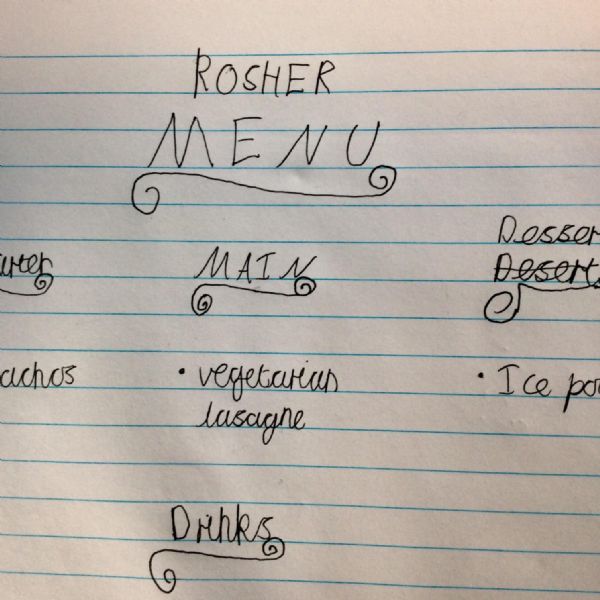 ROSHER
MENU
arter
MAIN
Desser
Desert
achos
• vegetarian
lasagne
• Ice po
Drinks